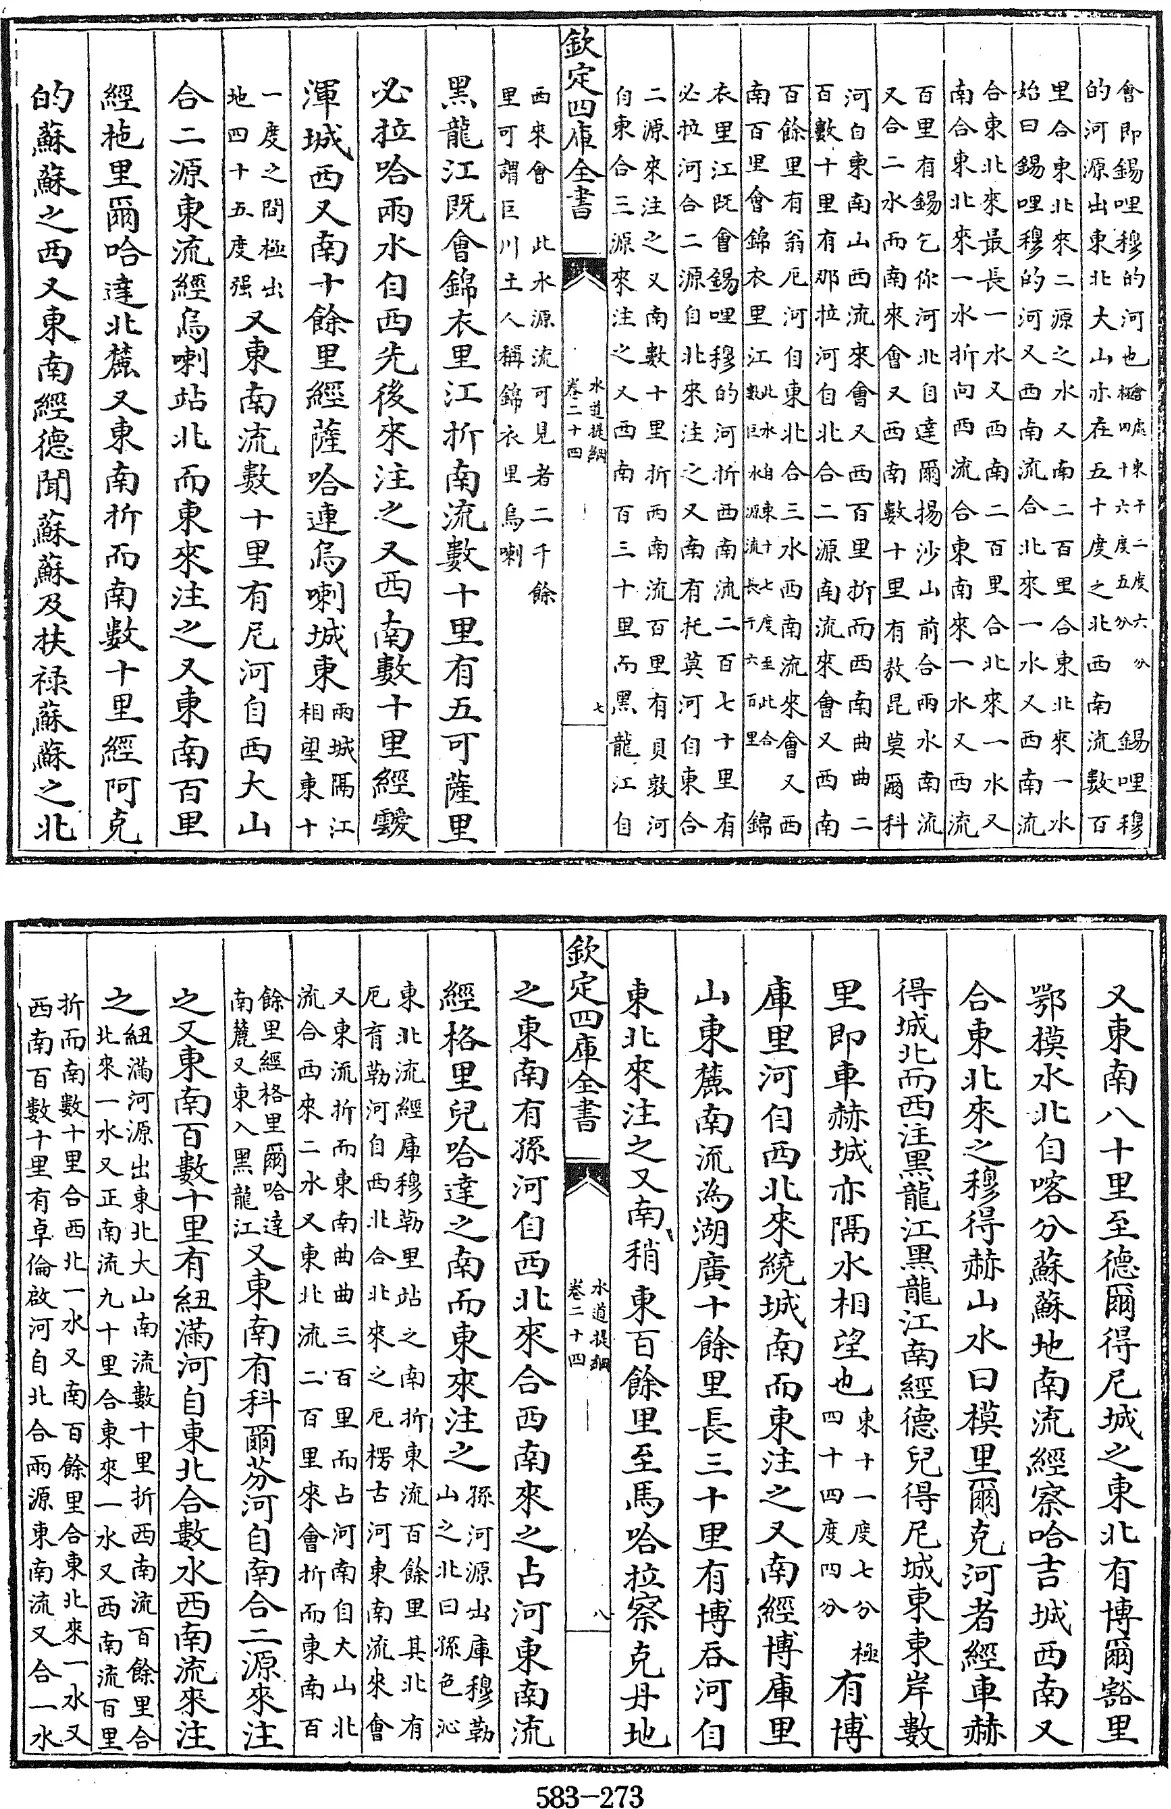 會即錫哩穆的河也會處東十二度六分極四十六度五分 錫哩穆
的河源出東北大山亦在五十度之北西南流數百
里合東北來二源之水又南二百里合東北來一水
始曰錫哩穆的河又西南流合北來一水又西南流
合東北來最長一水又西南二百里合北來一水又
南合東北來一水折向西流合東南來一水又西流
百里有錫乞你河北自達爾揚沙山前合兩水南流
又合二水而南來會又西南數十里有敖昆莫爾科
河自東南山西流來會又西百里折而西南曲曲二
百數十里有那拉河自北合二源南流來會又西南
百餘里有翁厄河自東北合三水西南流來會又西
南百里會錦衣里江此水自東十七度至此合數巨水源流長千六百里 錦
衣里江既會錫哩穆的河折西南流二百七十里有
必拉河合二源自北來注之又南有托莫河自東合
二源來注之又南數十里折西南流百里有貝敦河
自東合三源來注之又西南百三十里而黑龍江自
欽定四庫全書
水道提綱
卷二十四
七
西來會 此水源流可見者二千餘
里可謂巨川土人稱錦衣里烏喇
黑龍江既會錦衣里江折南流數十里有五可薩里
必拉哈兩水自西先後來注之又西南數十里經靉
渾城西又南十餘里經薩哈連烏喇城東兩城隔江相望東十
一度之間極出地四十五度强又東南流數十里有尼河自西大山
合二源東流經烏喇站北而東來注之又東南百里
經柂里爾哈達北麓又東南折而南數十里經阿克
的蘇蘇之西又東南經德聞蘇蘇及扶祿蘇蘇之北
又東南八十里至德爾得尼城之東北有博爾豁里
鄂模水北自喀分蘇蘇地南流經察哈吉城西南又
合東北來之穆得赫山水曰模里爾克河者經車赫
得城北而西注黑龍江黑龍江南經德兒得尼城東東岸數
里即車赫城亦隔水相望也東十一度七分極四十四度四分有博
庫里河自西北來繞城南而東注之又南經博庫里
山東麓南流為湖廣十餘里長三十里有博吞河自
東北來注之又南稍東百餘里至馬哈拉察克丹地
欽定四庫全書
水道提綱
卷二十四
八
之東南有孫河自西北來合西南來之占河東南流
經格里兒哈達之南而東來注之孫河源出庫穆勒山之北曰孫色沁
東北流經庫穆勒里站之南折東流百餘里其北有
厄育勒河自西北合北來之厄楞古河東南流來會
又東流折而東南曲曲三百里而占河南自大山北
流合西來二水又東北流二百里來會折而東南百
餘里經格里爾哈達南麓又東入黑龍江又東南有科爾芬河自南合二源來注
之又東南百數十里有紐滿河自東北合數水西南流來注
之紐滿河源出東北大山南流數十里折西南流百餘里合北來一水又正南流九十里合東來一水又西南流百里
折而南數十里合西北一水又南百餘里合東北來一水又
西南百數十里有卓倫啟河自北合兩源東南流又合一水
583-273